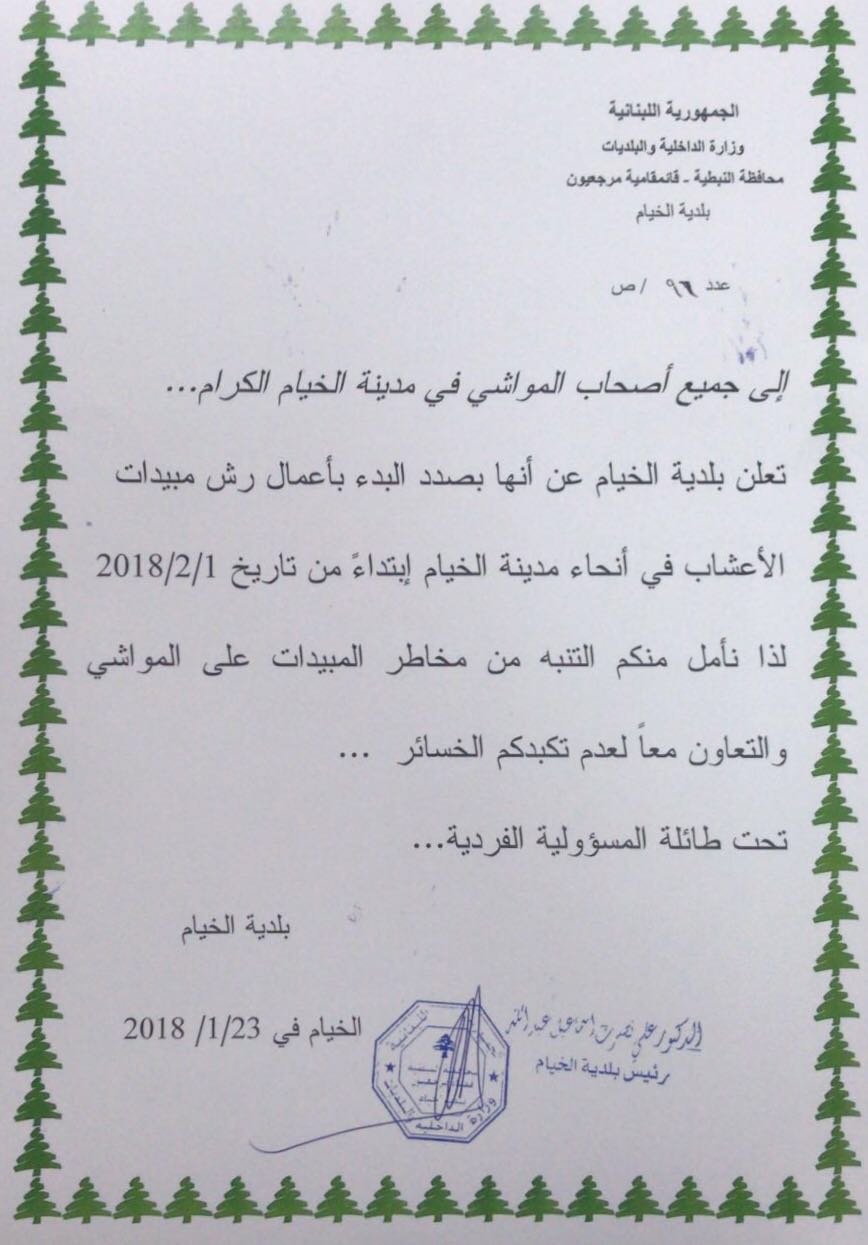 الجمهورية اللبنانية
وزارة الداخلية والبلديات
محافظة النبطية - قائمقامية مرجعيون
بلدية الخيام
عدد ٩٦ / ص
إلى جميع أصحاب المواشي في مدينة الخيام الكرام...
تعلن بلدية الخيام عن أنها بصدد البدء بأعمال رش مبيدات
الأعشاب في أنحاء مدينة الخيام إبتداءً من تاريخ 2018/2/1
لذا نأمل منكم التنبه من مخاطر المبيدات على المواشي
والتعاون معاً لعدم تكبدكم الخسائر ...
تحت طائلة المسؤولية الفردية...
بلدية الخيام
الخيام في 2018 /1/23
الدكتور علي
رئيس بلدية الخيام
اللبنانية
وزارة الداخلية والبلديات